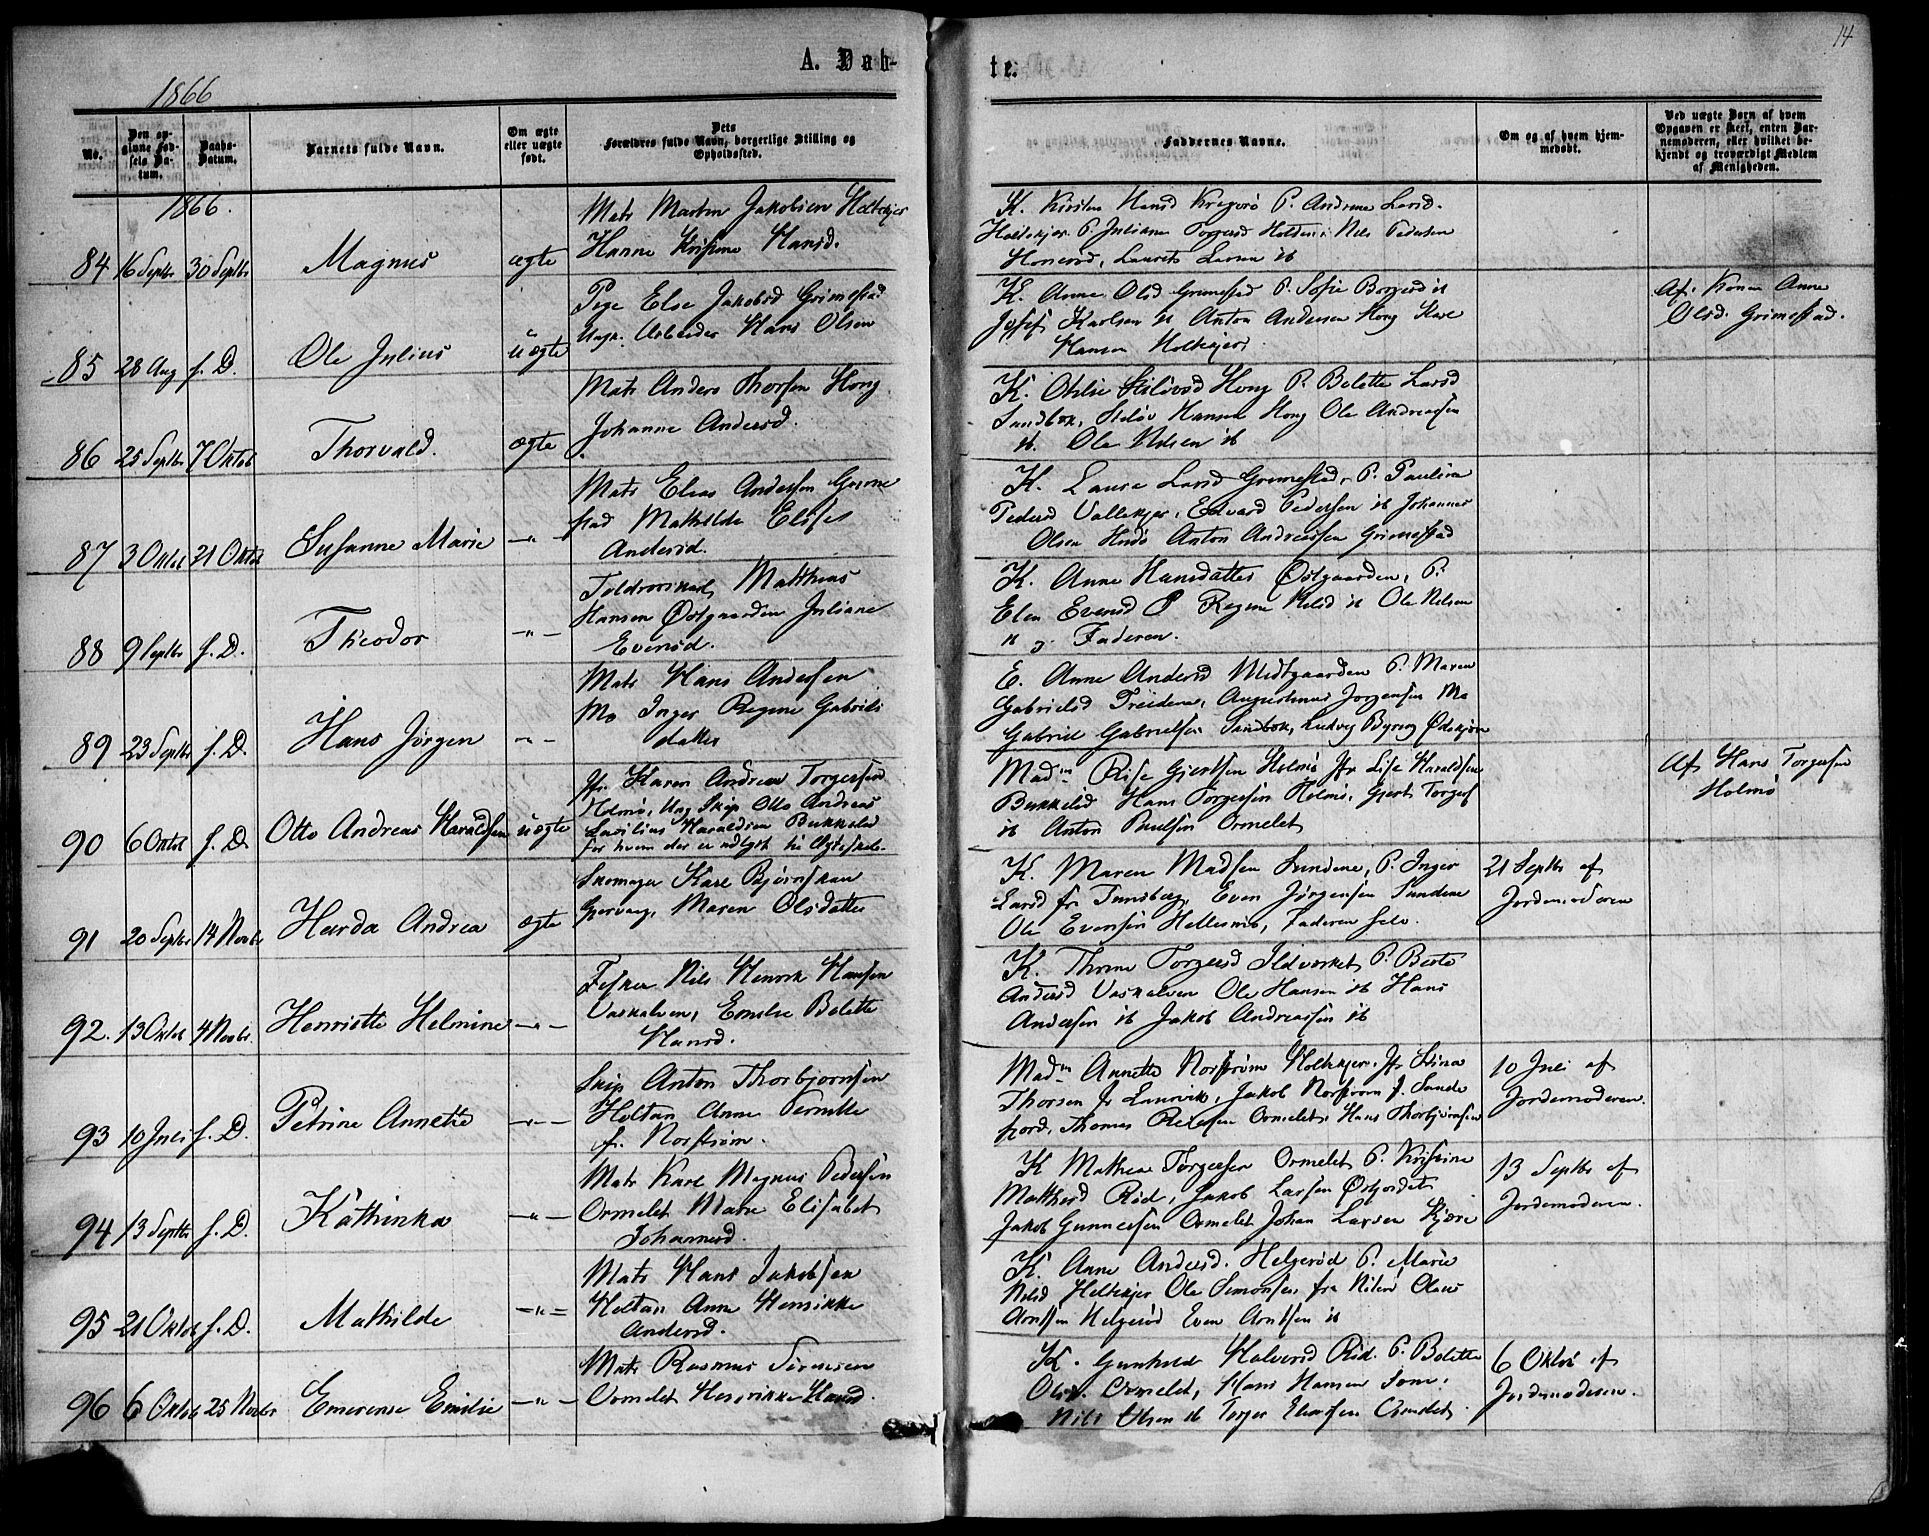 14
A. Døb-
te.
1866
No.
Den op-
givne Fød-
sels Da-
tum.
Daabs-
Datum.
Barnets fulde Navn.
Om ægte
eller uægte
født.
Dets
Forældres fulde Navn, borgerlige Stilling og
Opholdssted.
Faddernes Navne.
Om og af hvem hjem-
medøbt.
Ved uægte Børn af hvem
Opgaven er skeet, enten Bar-
nemoderen, eller hvilket be-
kjendt og troværdigt Medlem
af Menigheden.
1866.
84 16 Septbr 30 Septbr Magnus ægte
Matr Martin Jakobsen Holtekjær
Hanne Kristine Hansd.
K. Kirsten Hansd Kragerø P. Andrine Larsd.
Holtekjær P. Juliane Torgersd Holten Nils Pedersen
Honerød, Laurits Larsen ib
85 28 Aug s. D. Ole Julius uægte
Pige Else Jakobsd Grimestad
Ungk. Arbeider Hans Olsen
K. Anne Olsd Grimestad P. Sofie Borgersd ib
Josef Karlsen ib Anton Andersen Hong Kare
Hansen Holtekjær.
Af Konen Anne
Olsd. Grimestad.
86 25 Septbr 7 Oktob Thorvald. ægte
Matr Anders Thorsen Hong
Johanne Andersd.
K. Othlie Skiløvsd Hong P. Bolette Larsd
Sandbæk, Skiløv Hansen Hong Ole Andreassen
ib. Ole Nilsen ib
87 3 Oktob 21 Oktob Susanne Marie -"-
Matr Elias Andersen Grime
stad Mathilde Elise
Andersd.
K. Laura Larsd Grimestad, P. Pauline
Pedersd Vallekjær, Edvard Pedersen ib Johannes
Olsen Hvdø Anton Andreassen Grimestad
88 9 Septbr s. D. Theodor -"-
Toldroerskarl Matthias
Hansen Østgaarden Juliane
Evensd.
K. Anne Hansdatter Østgaarden, P.
Elen Evensd P Regine Nilsd ib Ole Nilsen
ib og Faderen.
89 23 Septbr s. D. Hans Jørgen -"-
Matr Hans Andersen
Mo Inger Regine Gabriels
datter
E. Anne Andersd Midtgaarden P. Maren
Gabrielsd Treidene, Augustinus Jørgensen Mo
Gabriel Gabrielsen Sandbæk, Ludvig Byring Ødekjær
90 6 Oktob s. D. Otto Andreas Haraldsen uægte
Jfr. Karen Andrea Torgersen
Holmø, Ung. Skip Otto Andreas
Lavilius Haraldsen Bukkelid
for hvem der er udlyst til Ægteskab.
Madm Rise Gjertsen Holmø Jfr Lise Haraldsen
Bukkelid Hans Torgersen Holmø, Gjert Torgers
ib Anton Paulsen Ormelet
Af Hans Torgersen
Holmø
91 20 Septbr 14 Novbr Harda Andrea ægte
Skomager Karl Bjørnskau
Gjervaag, Maren Olsdatter
K. Maren Madsen Sundene, P. Inger
Larsd fr Tunsberg, Even Jørgensen Sundene
Ole Evensen Hellesmo, Faderen selv.
21 Septbr af
Jordemoderen
92. 13 Oktob 4 Novbr. Henriette Helmine -"-
Fisker Nils Henrik Hansen
Vaskalven, Emilie Bolette
Hansd.
K. Thrine Torgersd Ildverket P. Berte
Andersd Vaskalven Ole Hansen ib Hans
Andersen ib Jakob Andreassen ib
93 10 Juni s. D. Petrine Annette -"-
Skip Anton Thorbjørnsen
Holtan Anne Pernille
f. Norstrøm.
Madm Annette Norstrøm Holtekjær. Jfr Stina
Thorsen fr Laurvik, Jakob Norstrøm f. Sande
fjord, Thomas Pedersen Ormelet, Hans Thorbjørnsen
10 Juni af
Jordemoderen.
94 13 Septbr s. D. Kathinka -"-
Matr Karl Magnus Pedersen
Ormelet Marie Elisabet
Johannesd.
K Mathea Torgersen Ormelet P. Kristine
Matthisd Rød, Jakob Larsen Østjordet
Jakob Gunnersen Ormelet Johan Larsen Kjære
13 Septbr af
Jordemoderen.
95 21 Oktob s. D. Mathilde -"-
Matr Hans Jakobsen
Holtan Anne Henrikke
Andersd.
K. Anne Andersd. Helgerød P. Marie
Nilsd Holtekjær Ole Simonsen fra Nilerø Olaus
Arntsen Helgerød Even Arntsen ib
96 6 Oktob 25 Novbr Emerense Emilie -"-
Matr Rasmus Sørensen
Ormelet Henrikke Hansd.
K. Gunhild Halversd Rød. P. Bolette
Olsd. Ormelet, Hans Hansen Tom.
Nils Olsen ib Torger Eliassen Ormelet.
6 Oktb af
Jordemoderen.